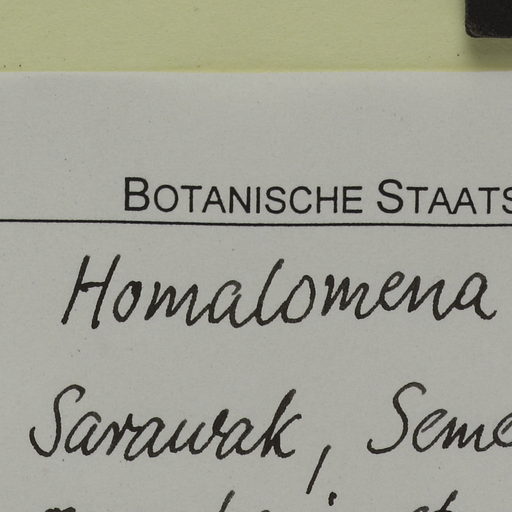 BOTANISCHE STAATS
Homalomena
Sarawak, Seme